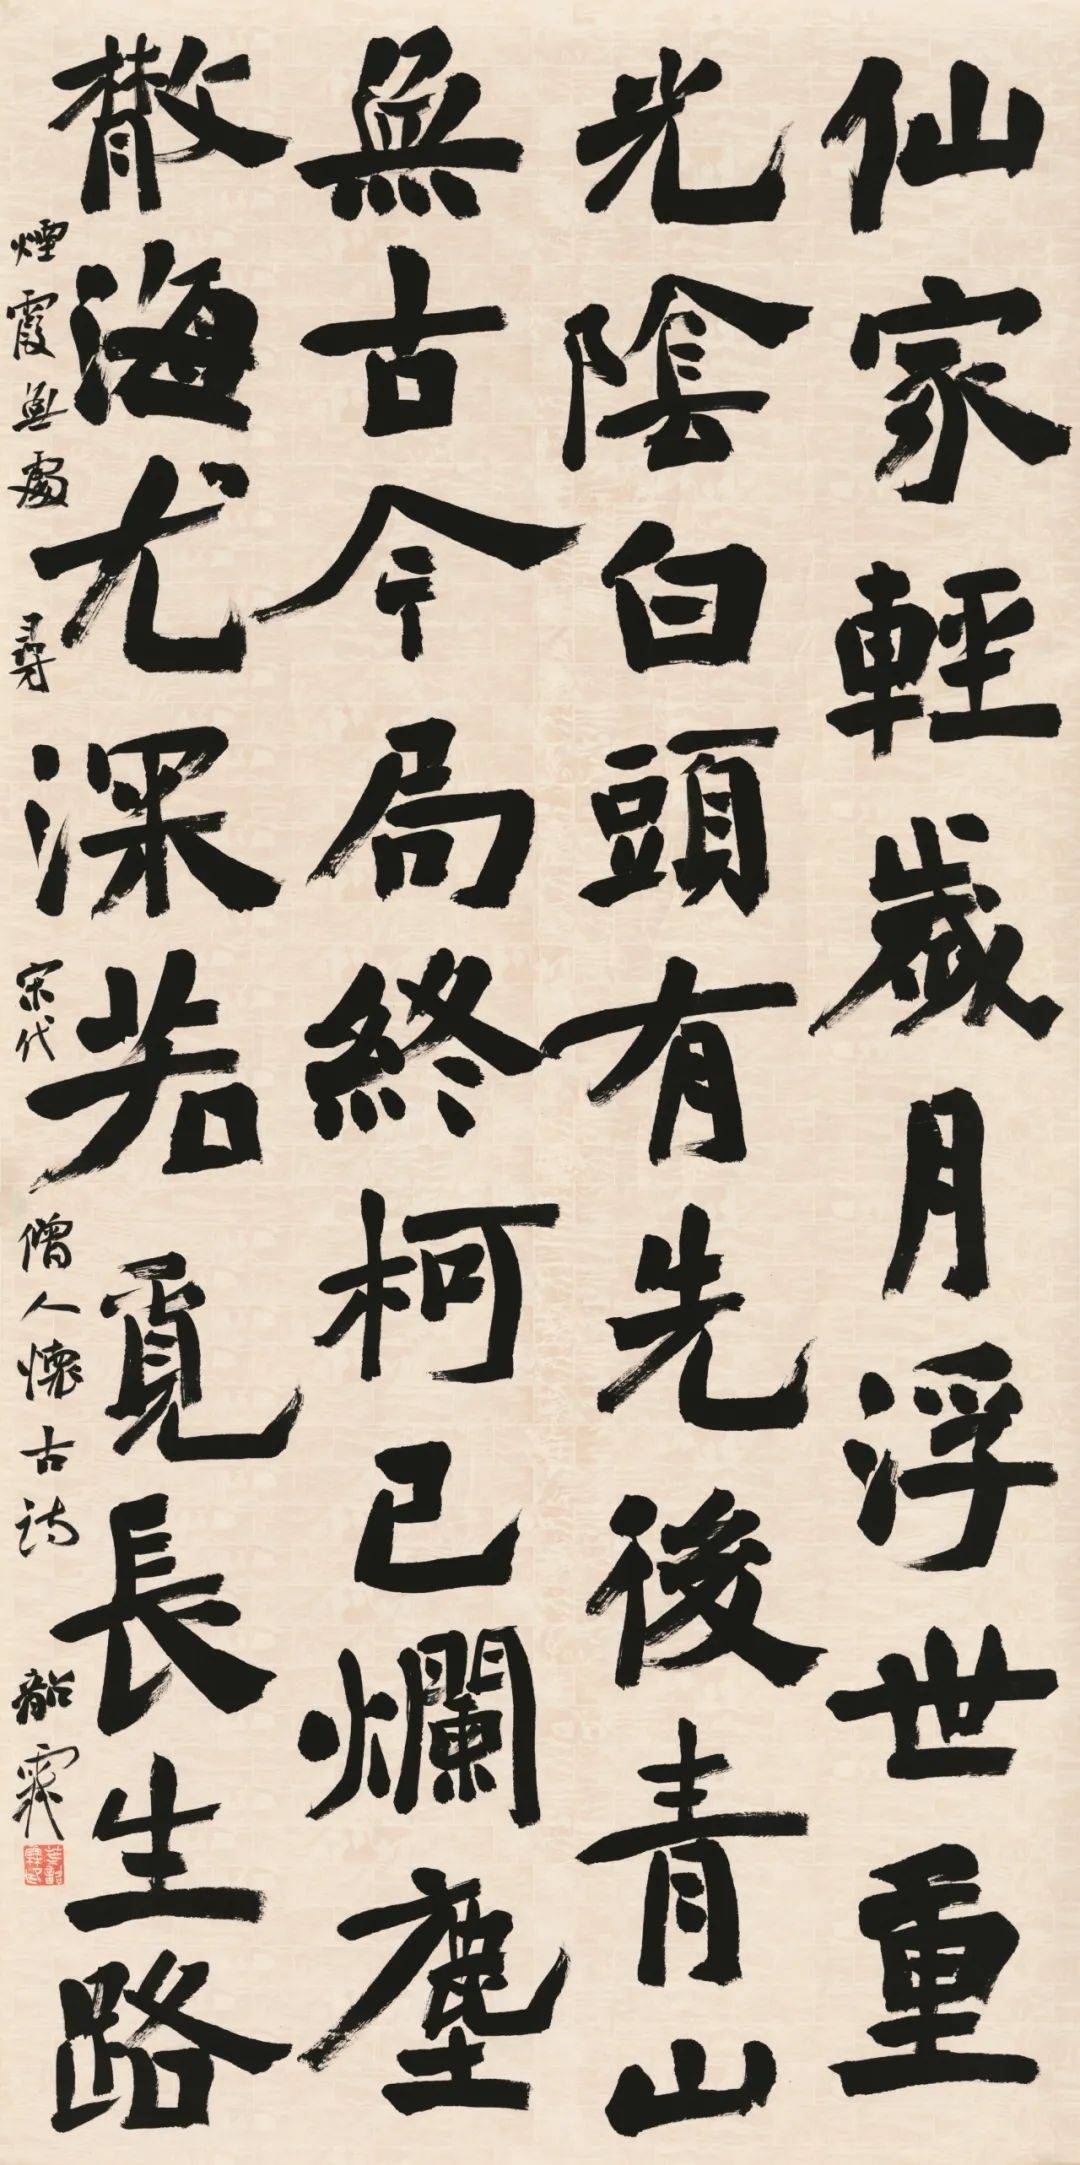 仙家輕歲月浮世重
光陰白頭有先後青山
無古今局終柯已爛塵
散海尤深若覓長生路
煙霞無處尋 宋代 僧人懷古詩 韶霖